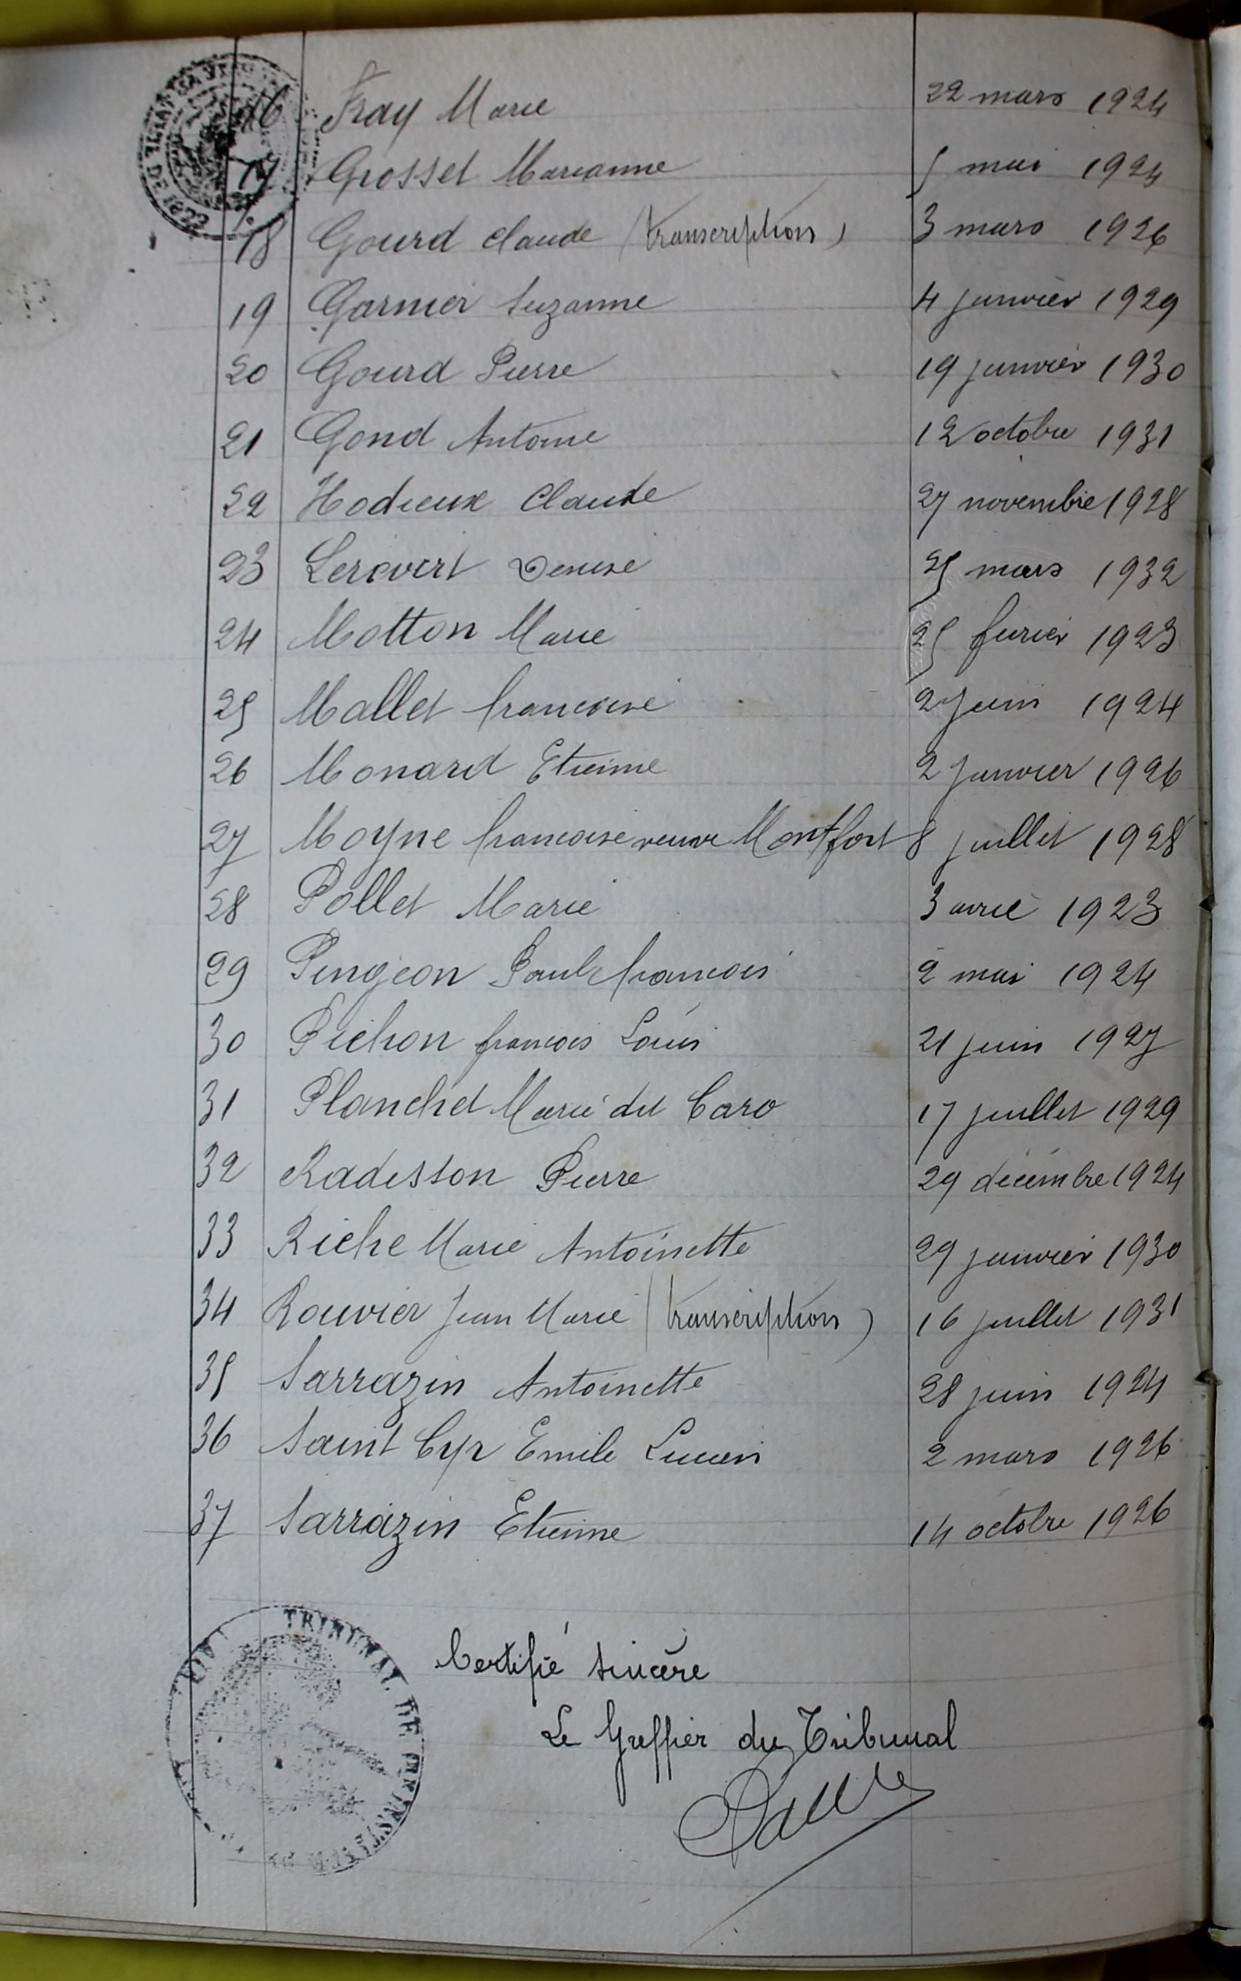 16 Fray Marie 22 mars 1924
17 Grosset Marianne 5 mai 1924
18 Gourd Claude (transcription) 3 mars 1926
19 Garnier Suzanne 4 janvier 1929
20 Gourd Pierre 19 janvier 1930
21 Gond Antoine 12 octobre 1931
22 Hodieux Claude 27 novembre 1928
23 Lerévert Denise 25 mars 1932
24 Motton Marie 25 fevrier 1923
25 Mallet francoise 2 juin 1924
26 Monard Etienne 2 janvier 1926
27 Moyne francoise veuve Montfort 8 juillet 1928
28 Pollet Marie 3 avril 1923
29 Pingeon Paul francois 2 mai 1924
30 Pichon francois Louis 21 juin 1927
31 Planchet Marie dit Caro 17 juillet 1929
32 Radisson Pierre 29 décembre 1924
33 Riche Marie Antoinette 29 janvier 1930
34 Rouvier Jean Marie (transcription) 16 juillet 1931
35 Sarrazin Antoinette 28 juin 1924
36 Saint Cyr Emile Lucien 2 mars 1926
37 Sarrazin Etienne 14 octobre 1926
TRIBUNAL DE
Certifié sincère
Le Greffier du Tribunal